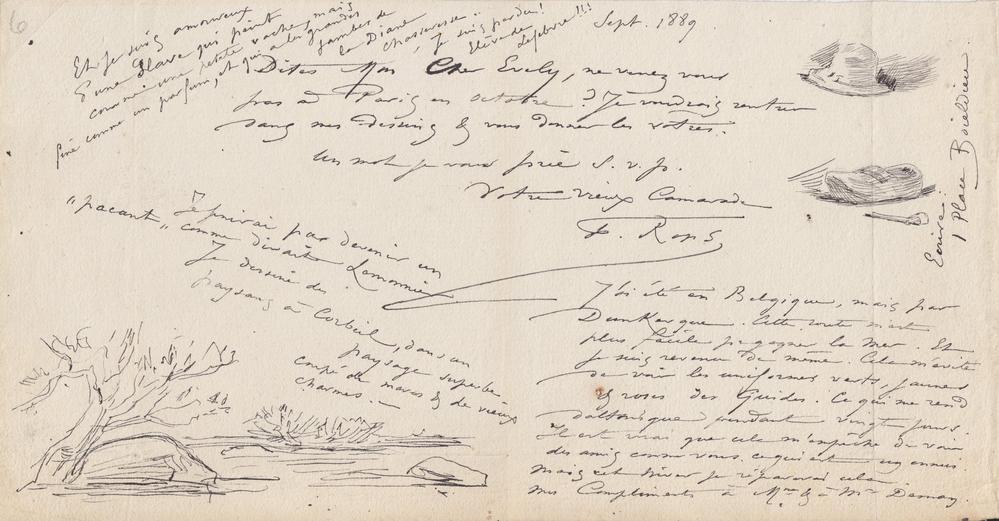 6
Sept. 1889
Et je suis amoureux
d'une Slave qui peint
comme une petite vache, mais
fine comme un parfum, et qui a les grandes
jambes de
la Diane
chasseresse..
Je suis perdu!
Élève de
Lefebvre!!!
Dites Mon Cher Evely, ne venez vous
pas à Paris en octobre? Je voudrais rentrer
dans mes dessins & vous donner les votres.
Un mot je vous prie S.v.p.
Votre vieux Camarade
F. Rops
Ecrire:
1 Place Boieldieu
Je finirai par devenir un
"pacant" comme dirait Lemonnier
Je dessine des
paysans à Corbeil, dans un
paysage superbe
coupé de mares & de vieux
charmes. —
J'ai été en Belgique, mais par
Dunkerque. Cette route est
plus facile pr gagner la mer. Et
je suis revenu de même. Cela m'évite
de voir les uniformes verts, jaunes
& roses des Guides. Ce qui me rend
daltonique pendant vingt jours.
Il est vrai que cela m'empêche de voir
des amis comme vous. ce qui est un ennui.
Mais cet hiver je réparerai cela.
Mes Compliments à Mme & à Mr